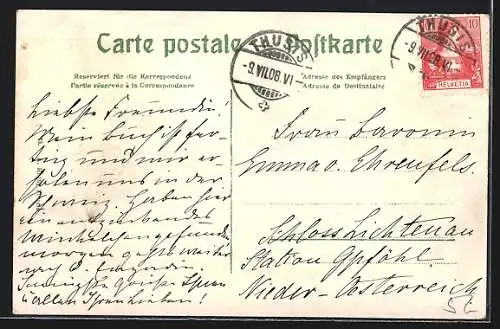 Carte postale. Postkarte
Reserviert für die Korrespondenz
Partie réservée à la Correspondance
Adresse des Empfängers
Adresse du Destinataire
THUSIS
-9.VII.08.VI-
THUSIS
-9.VII.08.VI-
10
HELVETIA
Liebste Freundin!
Mein Buch ist fer-
tig und wir er-
holen uns in der
Schweiz. Haben hier
ein entzückendes
gefunden,
morgen geht's weiter
Innigste Grüße Ihnen
u. allen Ihren Lieben!
Frau Baronin
Emma v. Ehrenfels
Schloss Lichtenau
Station Gpföhl
Nieder-Österreich